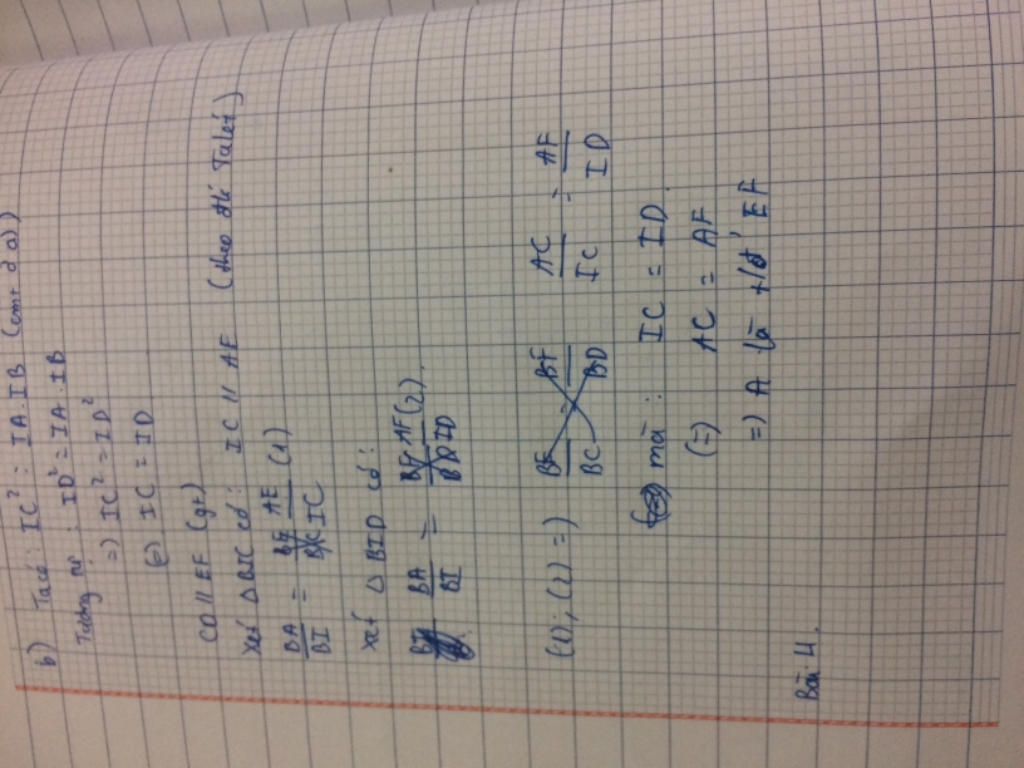 b) Ta có: IC² = IA.IB (cmt ở a))
Tương tự: ID² = IA.IB
=) IC² = ID²
(=) IC = ID
CD // EF (gt)
Xét Δ BIC có: IC // AE (theo đlí Talét)
BA/BI = AE/IC (1)
xét Δ BID có:
BA/BI = AF/ID (2)
(1), (2) =) AC/IC = AF/ID
mà: IC = ID
(=) AC = AF
=) A là tđ' EF
Bài 4.